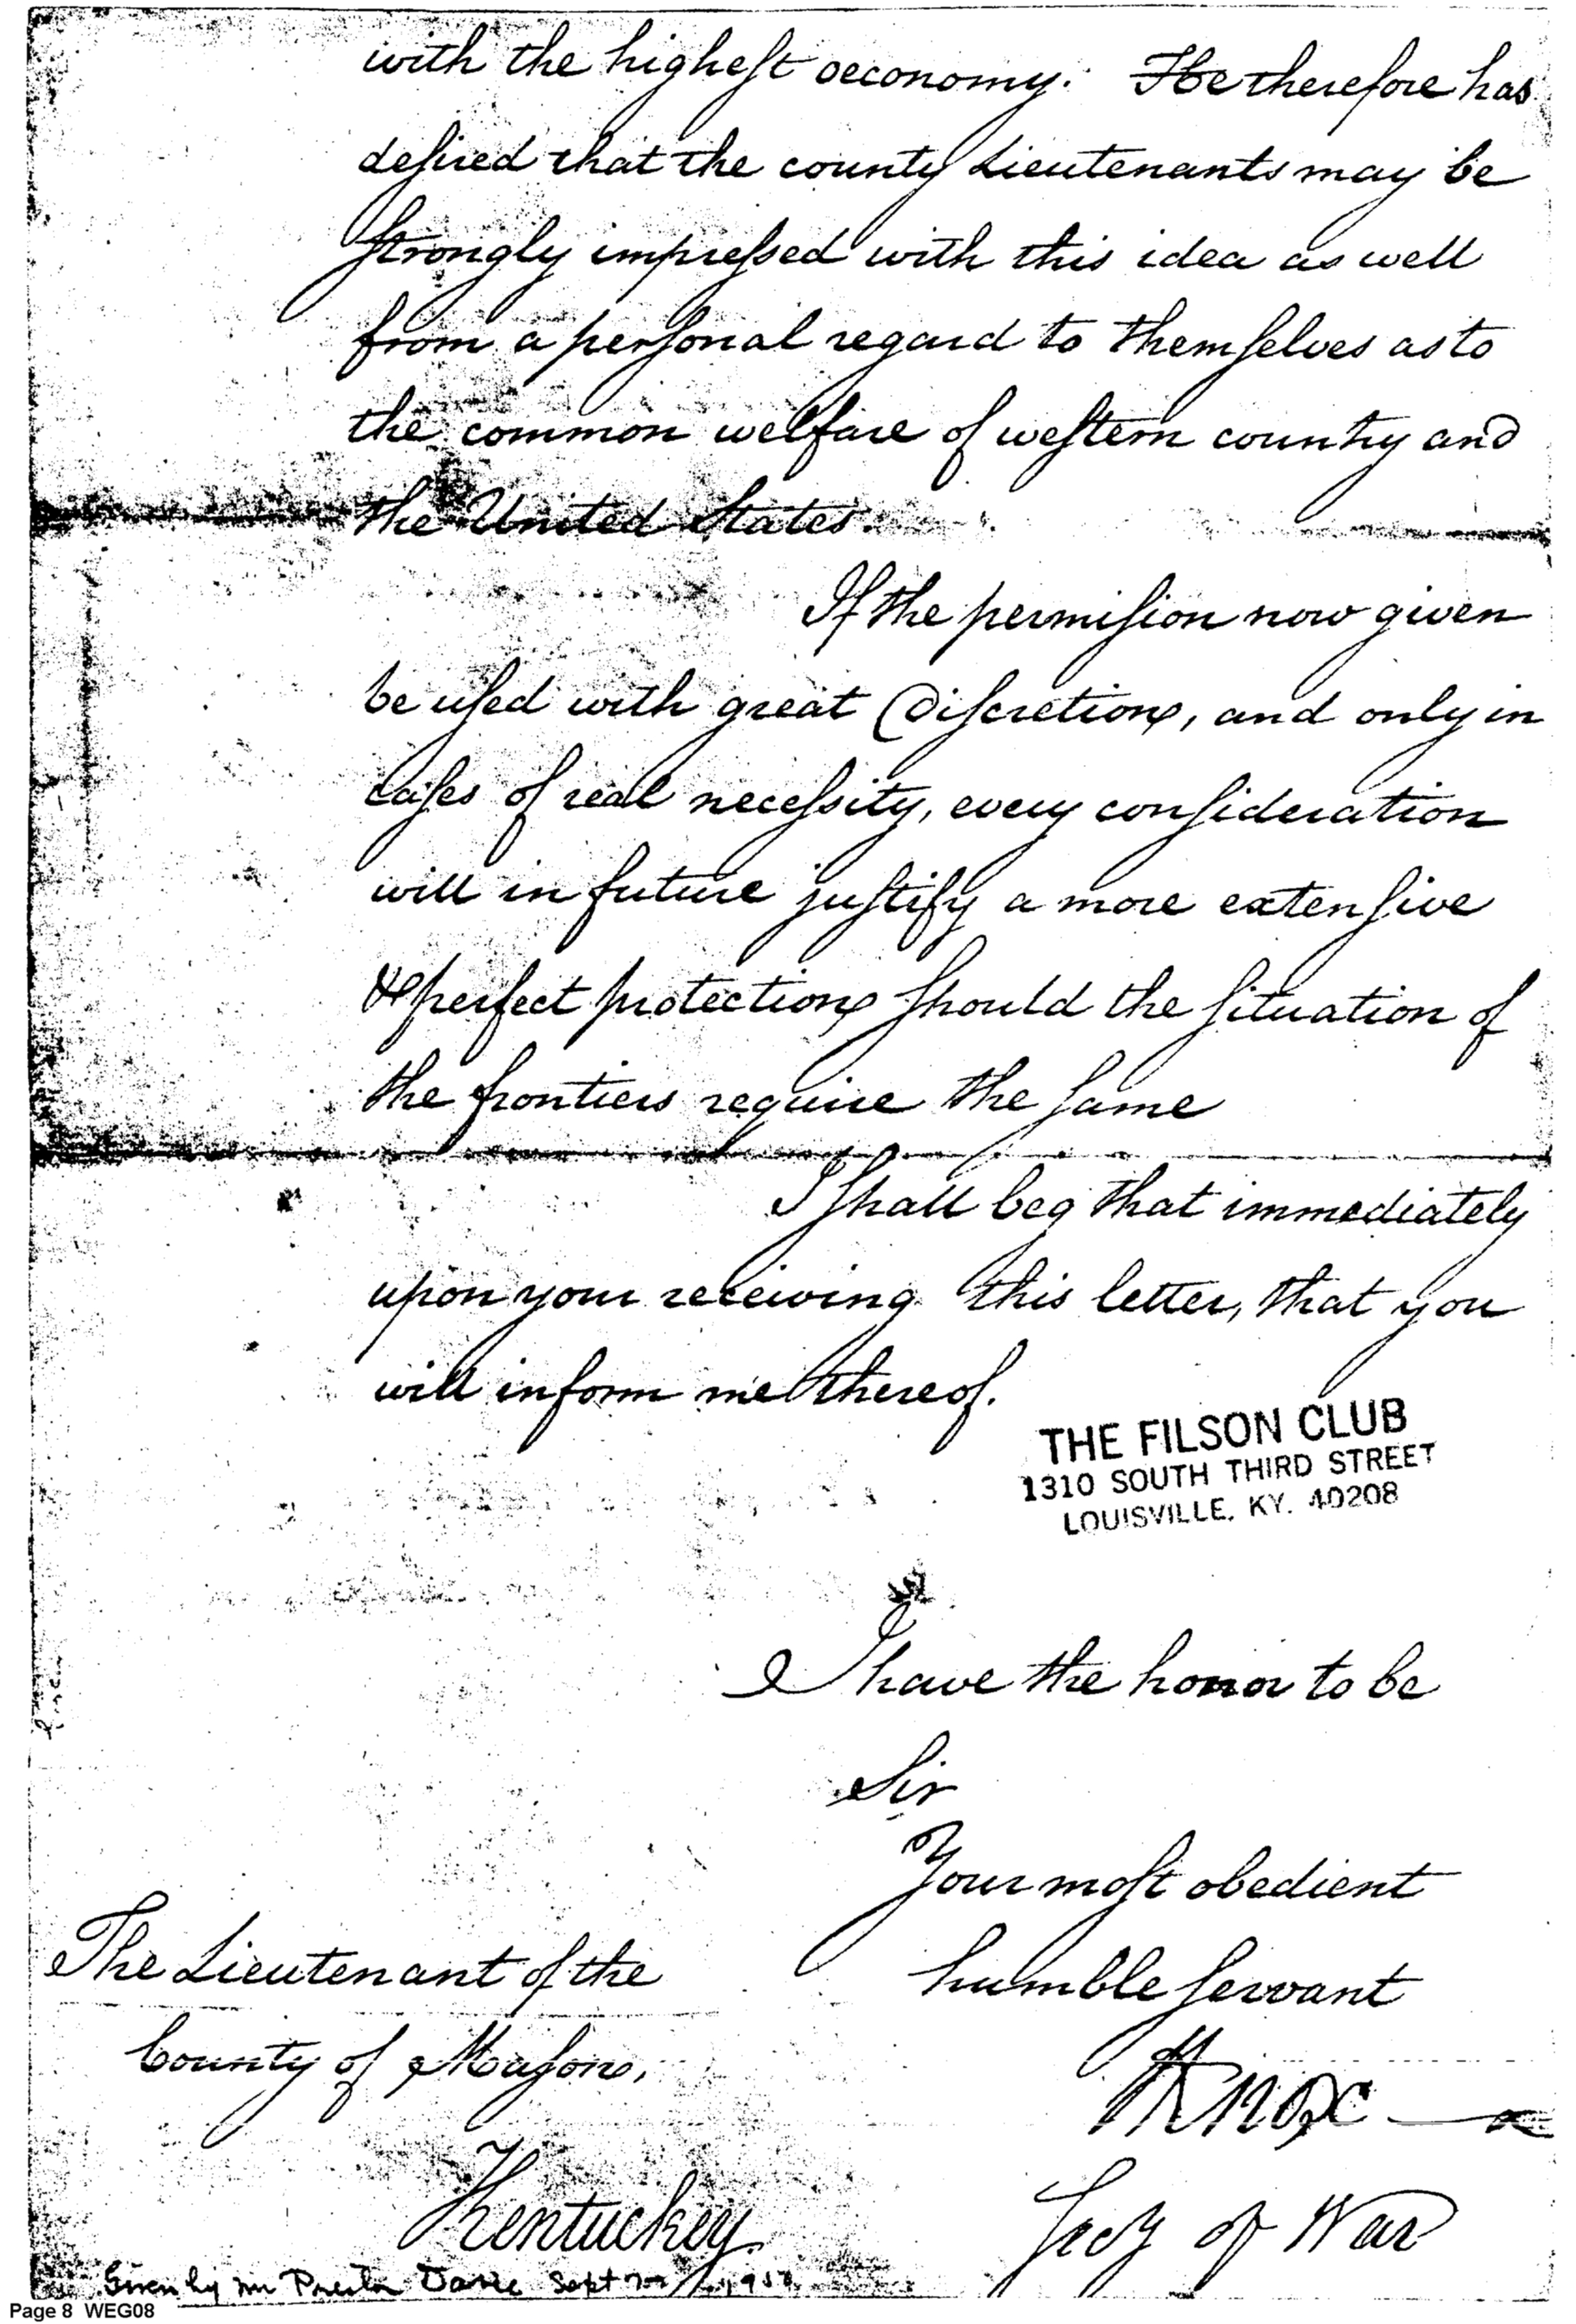 with the highest oeconomy. He therefore has
desired that the county Lieutenants may be
strongly impressed with this idea as well
from a personal regard to themselves as to
the common welfare of western country and
the United States.
If the permision now given
be used with great Discretion, and only in
cases of real necessity, every consideration
will in future justify a more extensive
& perfect protection should the situation of
the frontiers require the same
I shall beg that immediately
upon your receiving this letter, that you
will inform me thereof.
THE FILSON CLUB
1310 SOUTH THIRD STREET
LOUISVILLE, KY. 40208
I have the honor to be
Sir
Your most obedient
humble servant
The Lieutenant of the
County of Mason,
Kentuckey
HKnox
Secy of War
Given by Mr Preston Davie Sept
Page 8 WEG08